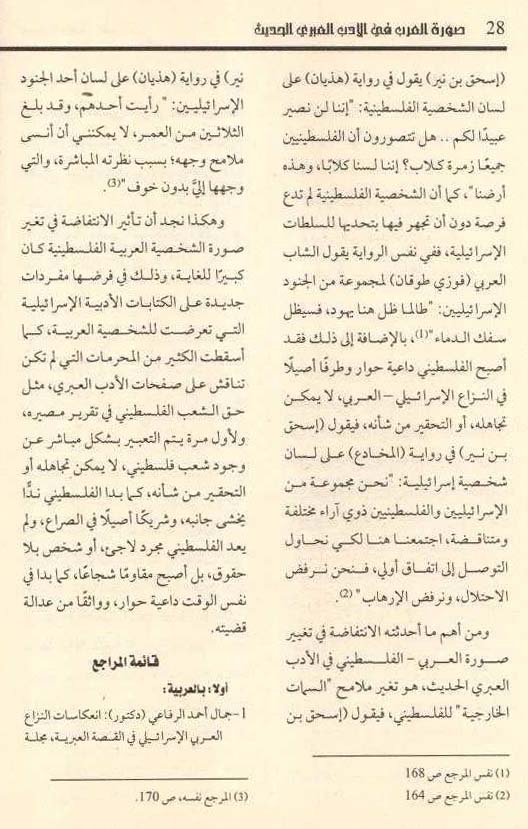 28 صورة العرب في الأدب العبري الحديث
(إسحق بن نير) يقول في رواية (هذيان) على
لسان الشخصية الفلسطينية: "إننا لن نصير
عبيدًا لكم .. هل تتصورون أن الفلسطينيين
جميعًا زمرة كلاب؟ إننا لسنا كلابًا، وهذه
أرضنا"، كما أن الشخصية الفلسطينية لم تدع
فرصة دون أن تجهر فيها بتحديها للسلطات
الإسرائيلية، ففي نفس الرواية يقول الشاب
العربي (فوزي طوقان) لمجموعة من الجنود
الإسرائيليين: "طالما ظل هنا يهود، فسيظل
سفك الدماء"(1)، بالإضافة إلى ذلك فقد
أصبح الفلسطيني داعية حوار وطرفًا أصيلًا
في النزاع الإسرائيلي – العربي، لا يمكن
تجاهله، أو التحقير من شأنه، فيقول (إسحق
بن نير) في رواية (المخادع) على لسان
شخصية إسرائيلية: "نحن مجموعة من
الإسرائيليين والفلسطينيين ذوي آراء مختلفة
ومتناقضة، اجتمعنا هنا لكي نحاول
التوصل إلى اتفاق أولي، فنحن نرفض
الاحتلال، ونرفض الإرهاب"(2).
ومن أهم ما أحدثته الانتفاضة في تغيير
صورة العربي – الفلسطيني في الأدب
العبري الحديث، هو تغير ملامح "السمات
الخارجية" للفلسطيني، فيقول (إسحق بن
(1) نفس المرجع ص 168
(2) نفس المرجع ص 164
نير) في رواية (هذيان) على لسان أحد الجنود
الإسرائيليين: "رأيت أحدهم، وقد بلغ
الثلاثين من العمر، لا يمكنني أن أنسى
ملامح وجهه؛ بسبب نظرته المباشرة، والتي
وجهها إليَّ بدون خوف"(3).
وهكذا نجد أن تأثير الانتفاضة في تغير
صورة الشخصية العربية الفلسطينية كان
كبيرًا للغاية، وذلك في فرضها مفردات
جديدة على الكتابات الأدبية الإسرائيلية
التي تعرضت للشخصية العربية، كما
أسقطت الكثير من المحرمات التي لم تكن
تناقش على صفحات الأدب العبري، مثل
حق الشعب الفلسطيني في تقرير مصيره،
ولأول مرة يتم التعبير بشكل مباشر عن
وجود شعب فلسطيني، لا يمكن تجاهله أو
التحقير من شأنه، كما بدا الفلسطيني ندًّا
يخشى جانبه، وشريكًا أصيلًا في الصراع، ولم
يعد الفلسطيني مجرد لاجئ، أو شخص بلا
حقوق، بل أصبح مقاومًا شجاعًا، كما بدا في
نفس الوقت داعية حوار، وواثقًا من عدالة
قضيته.
قائمة المراجع
أولا: بالعربية:
1- جمال أحمد الرفاعي (دكتور): انعكاسات النزاع
العربي الإسرائيلي في القصة العبرية، مجلة
(3) المرجع نفسه، ص 170.